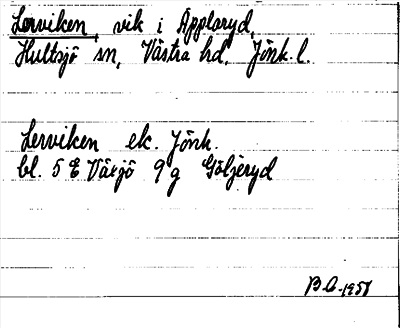 Lerviken, vik i Applaryd,
Hultsjö sn, Västra hd, Jönk. l.
Lerviken ek. Jönk.
bl. 5 E Växjö 9 g Göljeryd